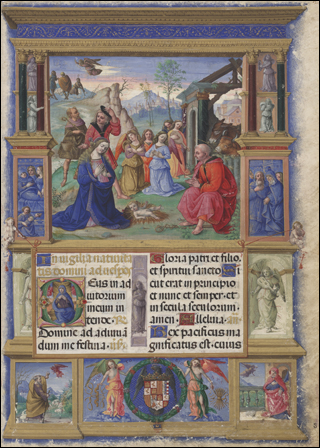 In vigilia nativita
tis domini ad vespos
Deus in ad
iutorium
meum in
tende. R.
Domine ad adiuvā
dum me festina.
Gloria patri et filio,
et spiritui sancto Si
cut erat in principio
et nunc et semper et
in secula seculorum
amen. Alleluia. an
Rex pacificus ma
gnificatus est cuius